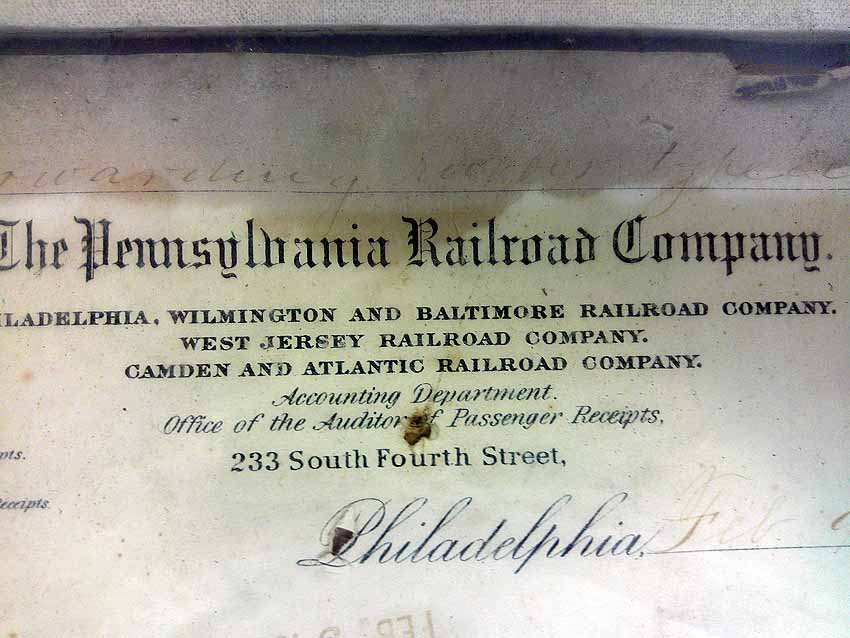 The Pennsylvania Railroad Company.
ILADELPHIA, WILMINGTON AND BALTIMORE RAILROAD COMPANY.
WEST JERSEY RAILROAD COMPANY.
CAMDEN AND ATLANTIC RAILROAD COMPANY.
Accounting Department.
Office of the Auditor of Passenger Receipts,
pts.
233 South Fourth Street,
Receipts.
Philadelphia, Feb. 9
FEB.